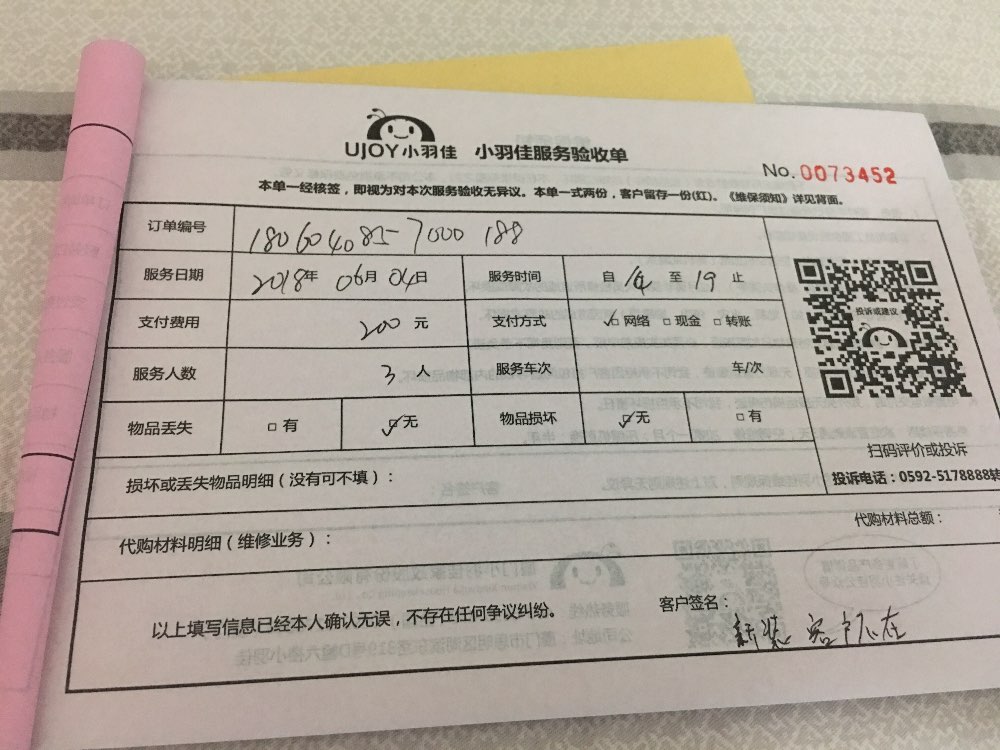 UJOY小羽佳 小羽佳服务验收单
No.0073452
本单一经核签，即视为对本次服务验收无异议。本单一式两份，客户留存一份(红)。《维保须知》详见背面。
订单编号 180604085-7000 188
服务日期 2018年 06月 04日 服务时间 自 14 至 19 止
投诉或建议
支付费用 200 元 支付方式 ☑网络 □现金 □转账
服务人数 3 人 服务车次 车/次
物品丢失 □有 ☑无 物品损坏 ☑无 □有
扫码评价或投诉
投诉电话：0592-5178888转
损坏或丢失物品明细（没有可不填）：
代购材料明细（维修业务）： 代购材料总额：
以上填写信息已经本人确认无误，不存在任何争议纠纷。 客户签名：
新装 客户不在